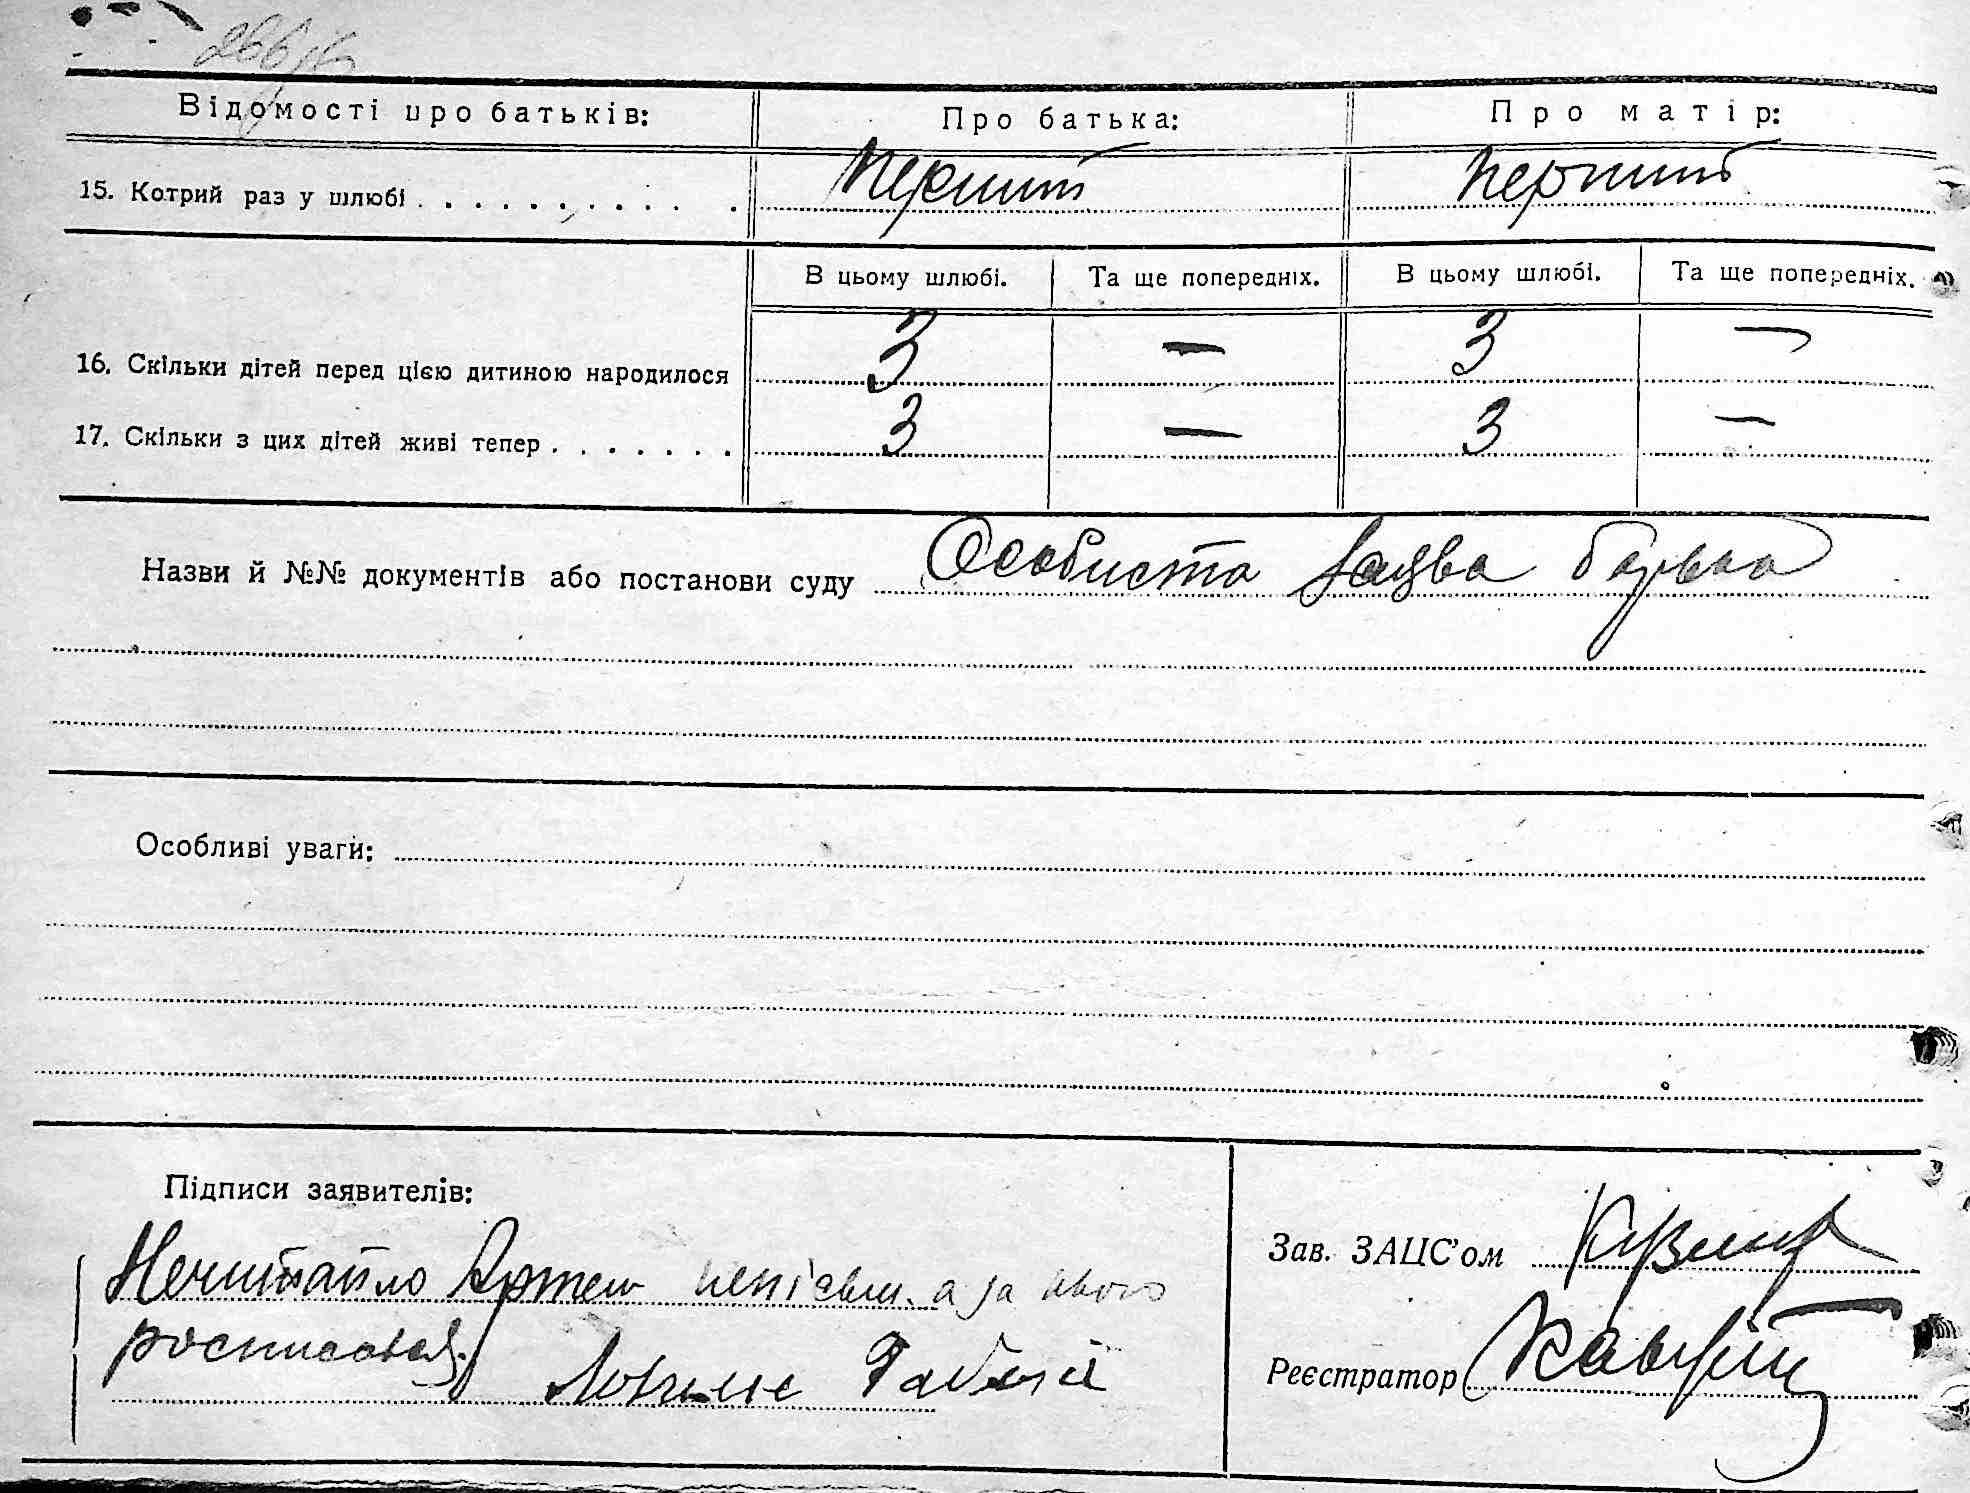 Відомості про батьків: Про батька: Про матір:
15. Котрий раз у шлюбі . . . . . . . . . . . перший перший
В цьому шлюбі. Та ще попередніх. В цьому шлюбі. Та ще попередніх.
16. Скільки дітей перед цією дитиною народилося 3 — 3 —
17. Скільки з цих дітей живі тепер . . . . . . . 3 — 3 —
Назви й №№ документів або постанови суду Особиста заява батька
Особливі уваги:
Підписи заявителів:
Зав. ЗАЦС'ом
Нечитайло Артем непісьм. а за нього
росписався
Реєстратор